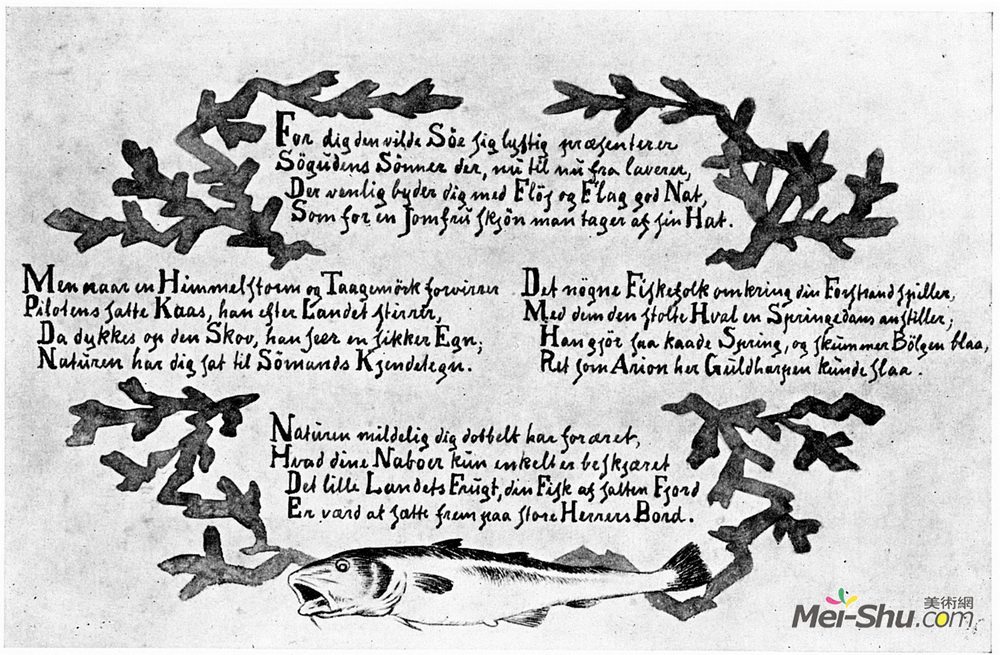 For dig den vilde Söe sig lystig præsenterer
Sögudens Sönner der, nu til nu fra laverer,
Der venlig byder dig med Flöj og Flag god Nat,
Som for en Jomfru skjön man tager af sin Hat.
Men naar en Himmelstorm og Taagemörk forvirrer
Pilotens satte Kaas, han efter Landet stirrer,
Da dykkes op den Skov, han seer en sikker Egn;
Naturen har dig sat til Sömands Kjendetegn.
Det nögne Fiskefolk omkring din Forstrand spiller,
Med dem den stolte Hval en Springedans anstiller;
Han gjör saa kaade Spring, og skummer Bölgen blaa,
Ret som Arion her Guldharpen kunde slaa.
Naturen mildelig dig dobbelt har foræret,
Hvad dine Naboer kun enkelt er beskjæret
Det lille Landets Frugt, din Fisk af salten Fjord
Er værd at sætte frem paa store Herrers Bord.
美術網
Mei-Shu.com